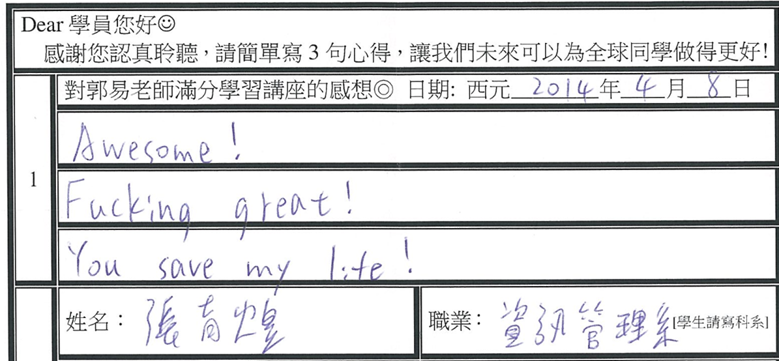 Dear 學員您好☺
感謝您認真聆聽，請簡單寫 3 句心得，讓我們未來可以為全球同學做得更好!
1
對郭易老師滿分學習講座的感想◎ 日期: 西元 2014 年 4 月 8 日
Awesome!
Fucking great!
You save my life!
姓名： 張育煌
職業： 資訊管理系 [學生請寫科系]